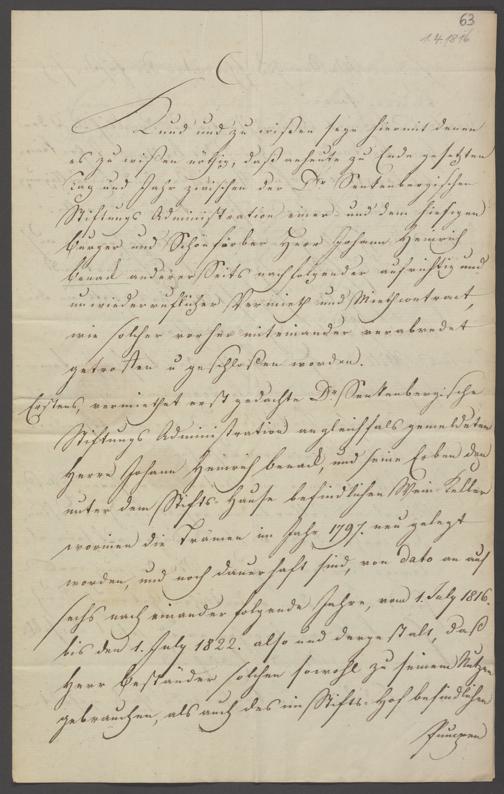 63
1.4.1816
Kund und zu wißen seye hiermit denen
es zu wißen nöthig, daß anheute zu Ende gesetzten
Tag und Jahr zwischen der Dr. Senkenbergischen
Stiftungs Administration einer und dem hiesigen
Burger und Schönfärber Herr Johann Heinrich
Benack andererseits nachfolgender aufrichtig und
unwiederruflicher Vermieth und Miethcontract,
wie solcher vorher miteinander verabredet
getroffen u geschloßen worden.
Erstens, vermiethet erst gedachte Dr. Senkenbergische
Stiftungs Administration an gleichfals gemeldeten
Herrn Johann Heinrich Benack, und seine Erben den
unter dem Stifts-Hause befindlichen Wein Keller
worinnen die Trämen im Jahr 1797. neu gelegt
worden, und noch dauerhaft sind, von dato an auf
sechs nach einander folgende Jahre, vom 1. July 1816.
bis den 1. July 1822. also und dergestalt, daß
Herr Beständer solchen sowohl zu seinem Nutzen
gebrauchen, als auch des im Stifts-Hof befindlichen